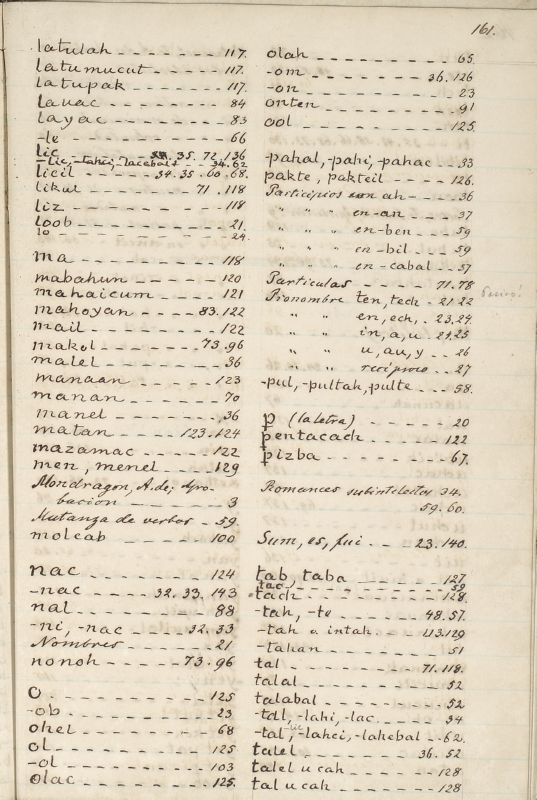 161.
latulah - - - - - - - - 117.
latumucut - - - - - - 117.
latupak - - - - - - - - 117.
lauac - - - - - - - - - 84
layac - - - - - - - - - 83
-le - - - - - - - - - - 66
lic - - - - - - 35. 72. 136
-lic, -lahci, -lacebal - - 34. 62
licil - - - - - 34. 35. 60. 68.
likul - - - - - - 71. 118.
liz - - - - - - - - - - 118
loob - - - - - - - - - 21.
lo - - - - - - - - - - 24.
ma - - - - - - - - - - 118
mabahun - - - - - - - 120
mahaicum - - - - - - 121
mahoyan - - - - - 83. 122
mail - - - - - - - - - 122
makol - - - - - - - 73. 96
malel - - - - - - - - - 36
manaan - - - - - - - - 123
manan - - - - - - - - 70
manel - - - - - - - - 36
matan - - - - - - 123. 124
mazamac - - - - - - - 122
men, menel - - - - - 129
Mondragon, A. de; Apro-
bacion - - - - - - - 3
Mutanza de verbos - 59.
moleab - - - - - - - 100
nac - - - - - - - - - 124
-nac - - - - - 32. 33. 143
nal - - - - - - - - - 88
-ni, -nac - - - - - 32. 33
Nombres - - - - - - - 21
nonoh - - - - - - 73. 96
O - - - - - - - - - - 125
-ob - - - - - - - - - 23
ohel - - - - - - - - - 68
ol - - - - - - - - - - 125
-ol - - - - - - - - - 103
olac - - - - - - - - - 125.
olah - - - - - - - - - 65.
-om - - - - - - - 36. 126
-on - - - - - - - - - 23
onten - - - - - - - - 91
ool - - - - - - - - - 125.
-pahal, -pahi, pahac - 33
pakte, pakteil - - - - 126.
Participios en ah - - - 36
" " " en -an - - - 37
" " " en -ben - - 59
" " " en -bil - - 59
" " " en -cabal - 57
Particulas - - - - - 71. 78
Pronombre ten, tech - 21. 22
" " en, ech, - 23, 24.
" " in, a, u - 24, 25
" " u, au, y - - 26
" " reciproco - - 27
-pul, -pultah, pulte - - 58.
p (la letra) - - - - - 20
pentacach - - - - - - 122
pizba - - - - - - - - 67.
Romances subintelectos 34.
59. 60.
Sum, es, fui - - - 23. 140.
tab, taba - - - - - - 127
tac - - - - - - - - - 59
tach - - - - - - - - 128.
-tah, -te - - - - - 48. 57.
-tah a intah - - - 113. 129
-tahan - - - - - - - 51
tal - - - - - - - 71. 118.
talal - - - - - - - - 52
talabal - - - - - - - 52
-tal, -lahi, -lac - - - 34
lic
-tal, -lahci, -lahebal - - 62.
talel - - - - - - - 36. 52
talel u cah - - - - - 128
tal u cah - - - - - - 128